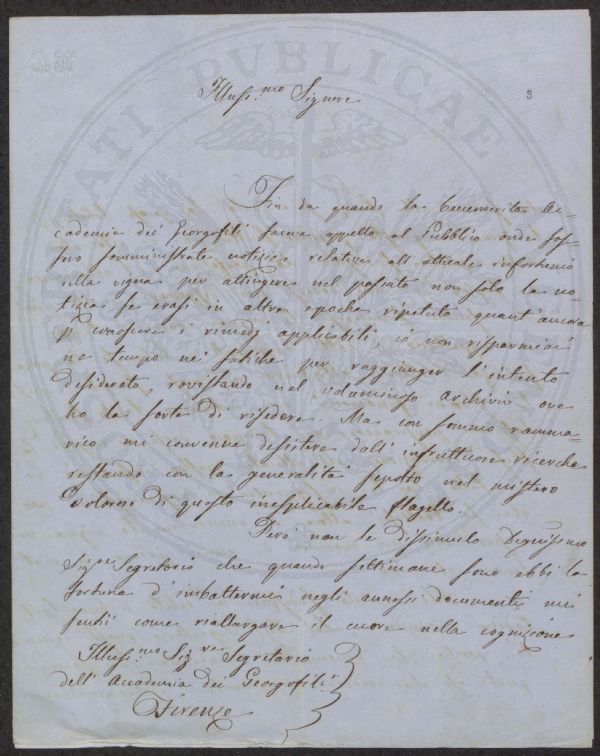 3
Illuss.mo Signore
Fin da quando la benemerita Ac=
cademia dei Georgofili faceva appello al Pubblico onde fos=
sero somministrate notizie relative all'attuale infortunio
della vigna per attingere nel passato non solo la no=
tizia se erasi in altre epoche ripetuto quant'ancora
p conoscere i rimedj applicabili, io non risparmiai
ne tempo ne' fatiche per raggiunger l'intento
desiderato, rovistando nel voluminoso Archivio ove
ho la sorte di risedere. Ma con sommo ramma=
rico mi convenne desistere dall'infruttuose ricerche
restando con la generalità sepolto nel mistero
doloroso di questo inesplicabile flagello.
Però non le dissimulo Degnissimo
Sig.re Segretario che quando settimane sono ebbi la
fortuna d'imbattermi negli annessi documenti mi
sentii come riallargare il cuore nella cognizione
Illuss.mo Sig.re Segretario
dell'Accademia dei Georgofili
Firenze